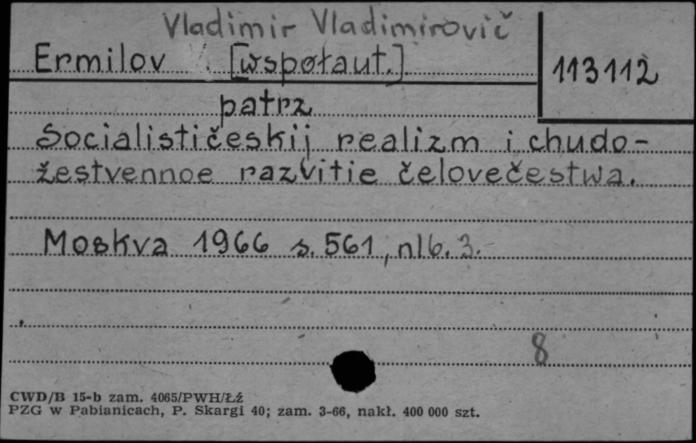 Vladimir Vladimirovič
Ermilov [współaut.]
113112
patrz
Socialističeskij realizm i chudo-
žestvennoe razvitie čelovečestwa.
Moskva 1966 s. 561, nlb. 3.
8
CWD/B 15-b zam. 4065/PWH/Łź
PZG w Pabianicach, P. Skargi 40; zam. 3-66, nakł. 400 000 szt.